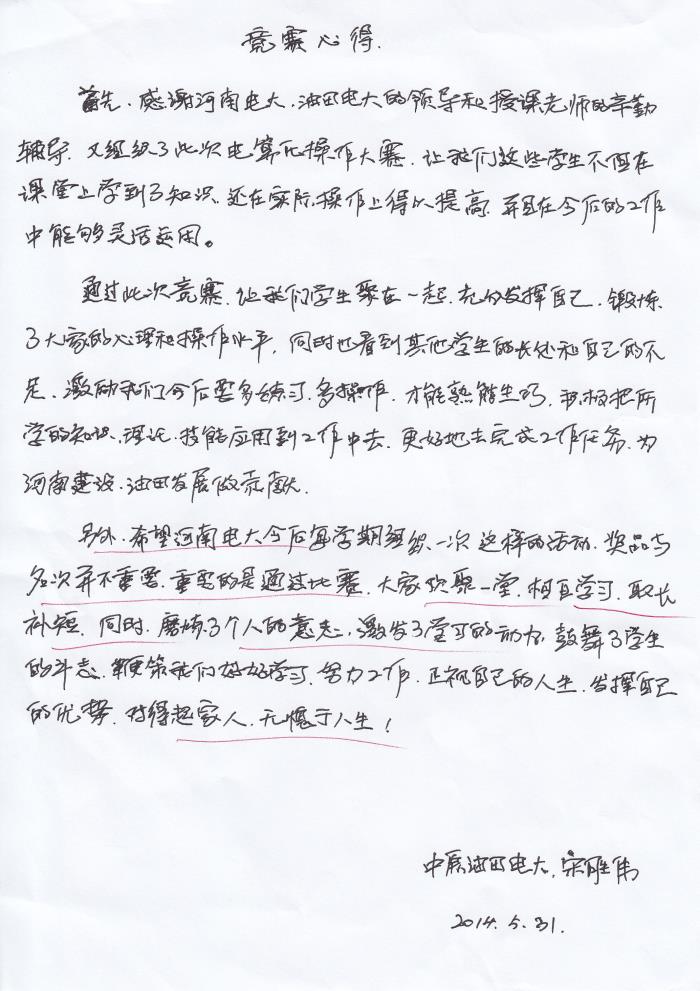 竞赛心得.
首先、感谢河南电大、油田电大的领导和授课老师的辛勤
辅导、又组织了此次电算化操作大赛、让我们这些学生不但在
课堂上学到了知识、还在实际操作上得以提高、并且在今后的工作
中能够灵活运用。
通过此次竞赛、让我们学生聚在一起、充分发挥自己、锻炼
了大家的心理和操作水平、同时也看到其他学生的长处和自己的不
足、激励我们今后要多练习、多操作、才能熟能生巧、积极把所
学的知识、理论、技能应用到工作中去、更好地去完成工作任务、为
河南建设、油田发展做贡献.
另外、希望河南电大今后每学期组织一次这样的活动、奖品与
名次并不重要、重要的是通过比赛、大家欢聚一堂、相互学习、取长
补短、同时、磨炼了个人的意志、激发了学习的动力、鼓舞了学生
的斗志、鞭策我们好好学习、努力工作、正视自己的人生、发挥自己
的优势、对得起家人、无愧于人生！
中原油田电大、宋胜伟
2014.5.31.